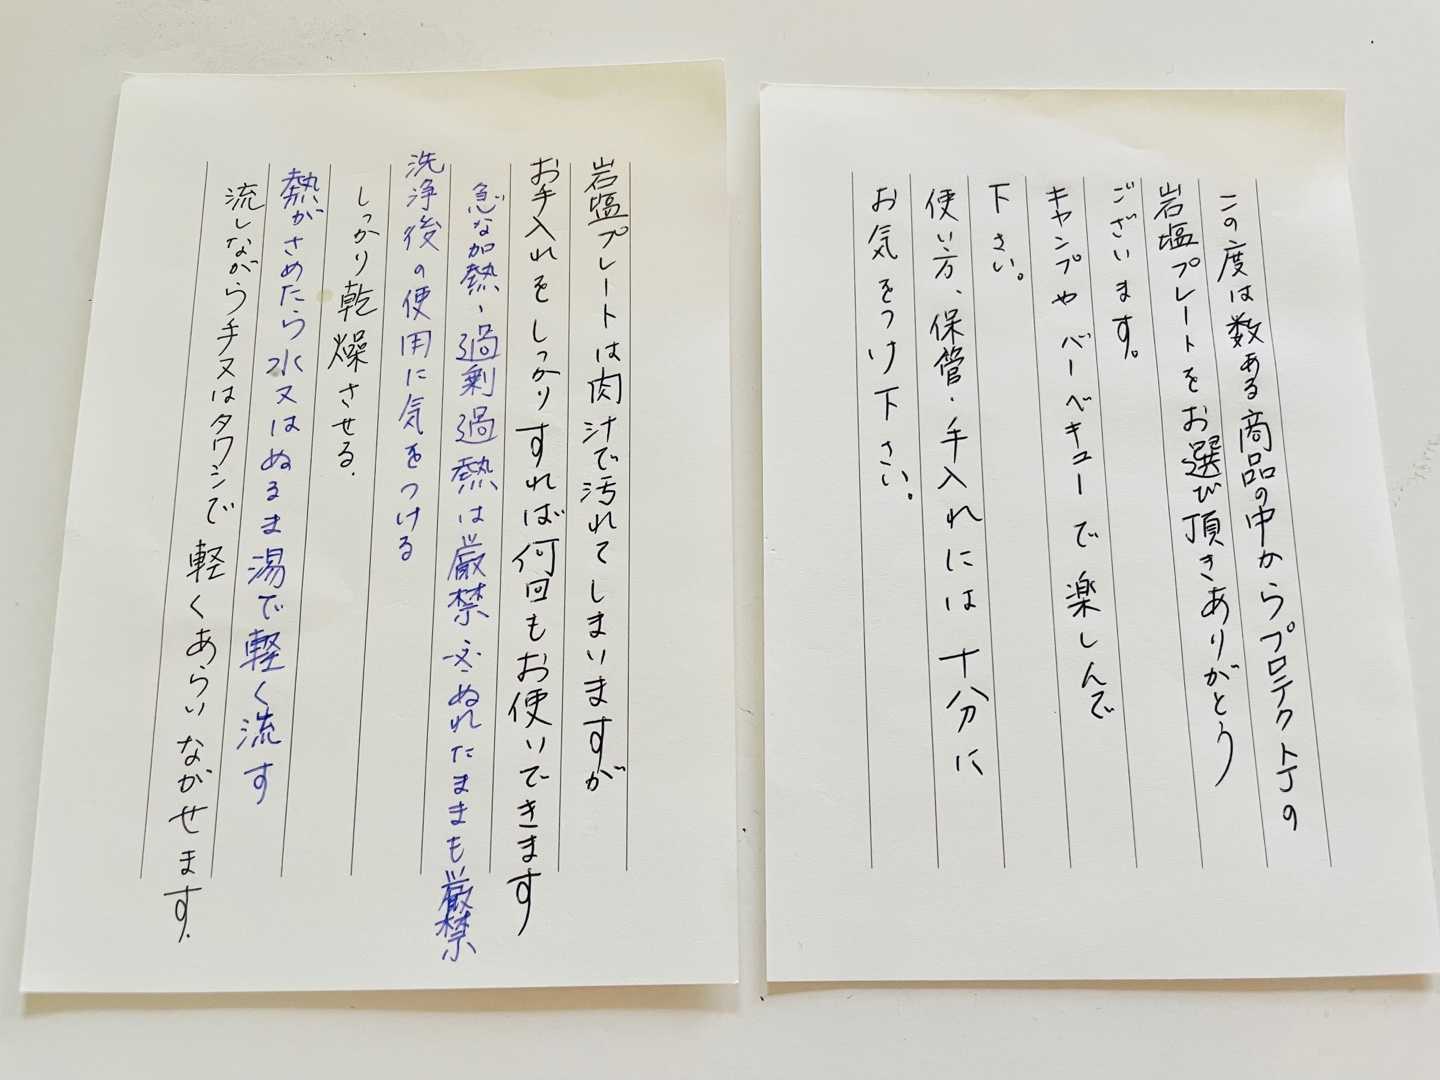 この度は数ある商品の中からプロテクトJの
岩塩プレートをお選び頂きありがとう
ございます。
キャンプやバーベキューで楽しんで
下さい。
使い方、保管・手入れには十分に
お気をつけ下さい。
岩塩プレートは肉汁で汚れてしまいますが
お手入れをしっかりすれば何回もお使いできます
急な加熱、過剰過熱は厳禁 ぬれたままも厳禁
洗浄後の使用に気をつける
しっかり乾燥させる.
熱がさめたら水又はぬるま湯で軽く流す
流しながら手又はタワシで軽くあらいながせます.